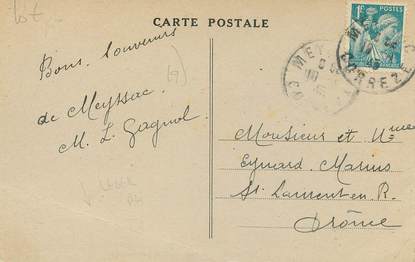 CARTE POSTALE
Bons Souvenirs
de Meyssac.
M. L. Gagnol.
1F POSTES
CORREZE
Monsieur et Mme
Eynard Marius
St Laurent-en-R.
Drôme